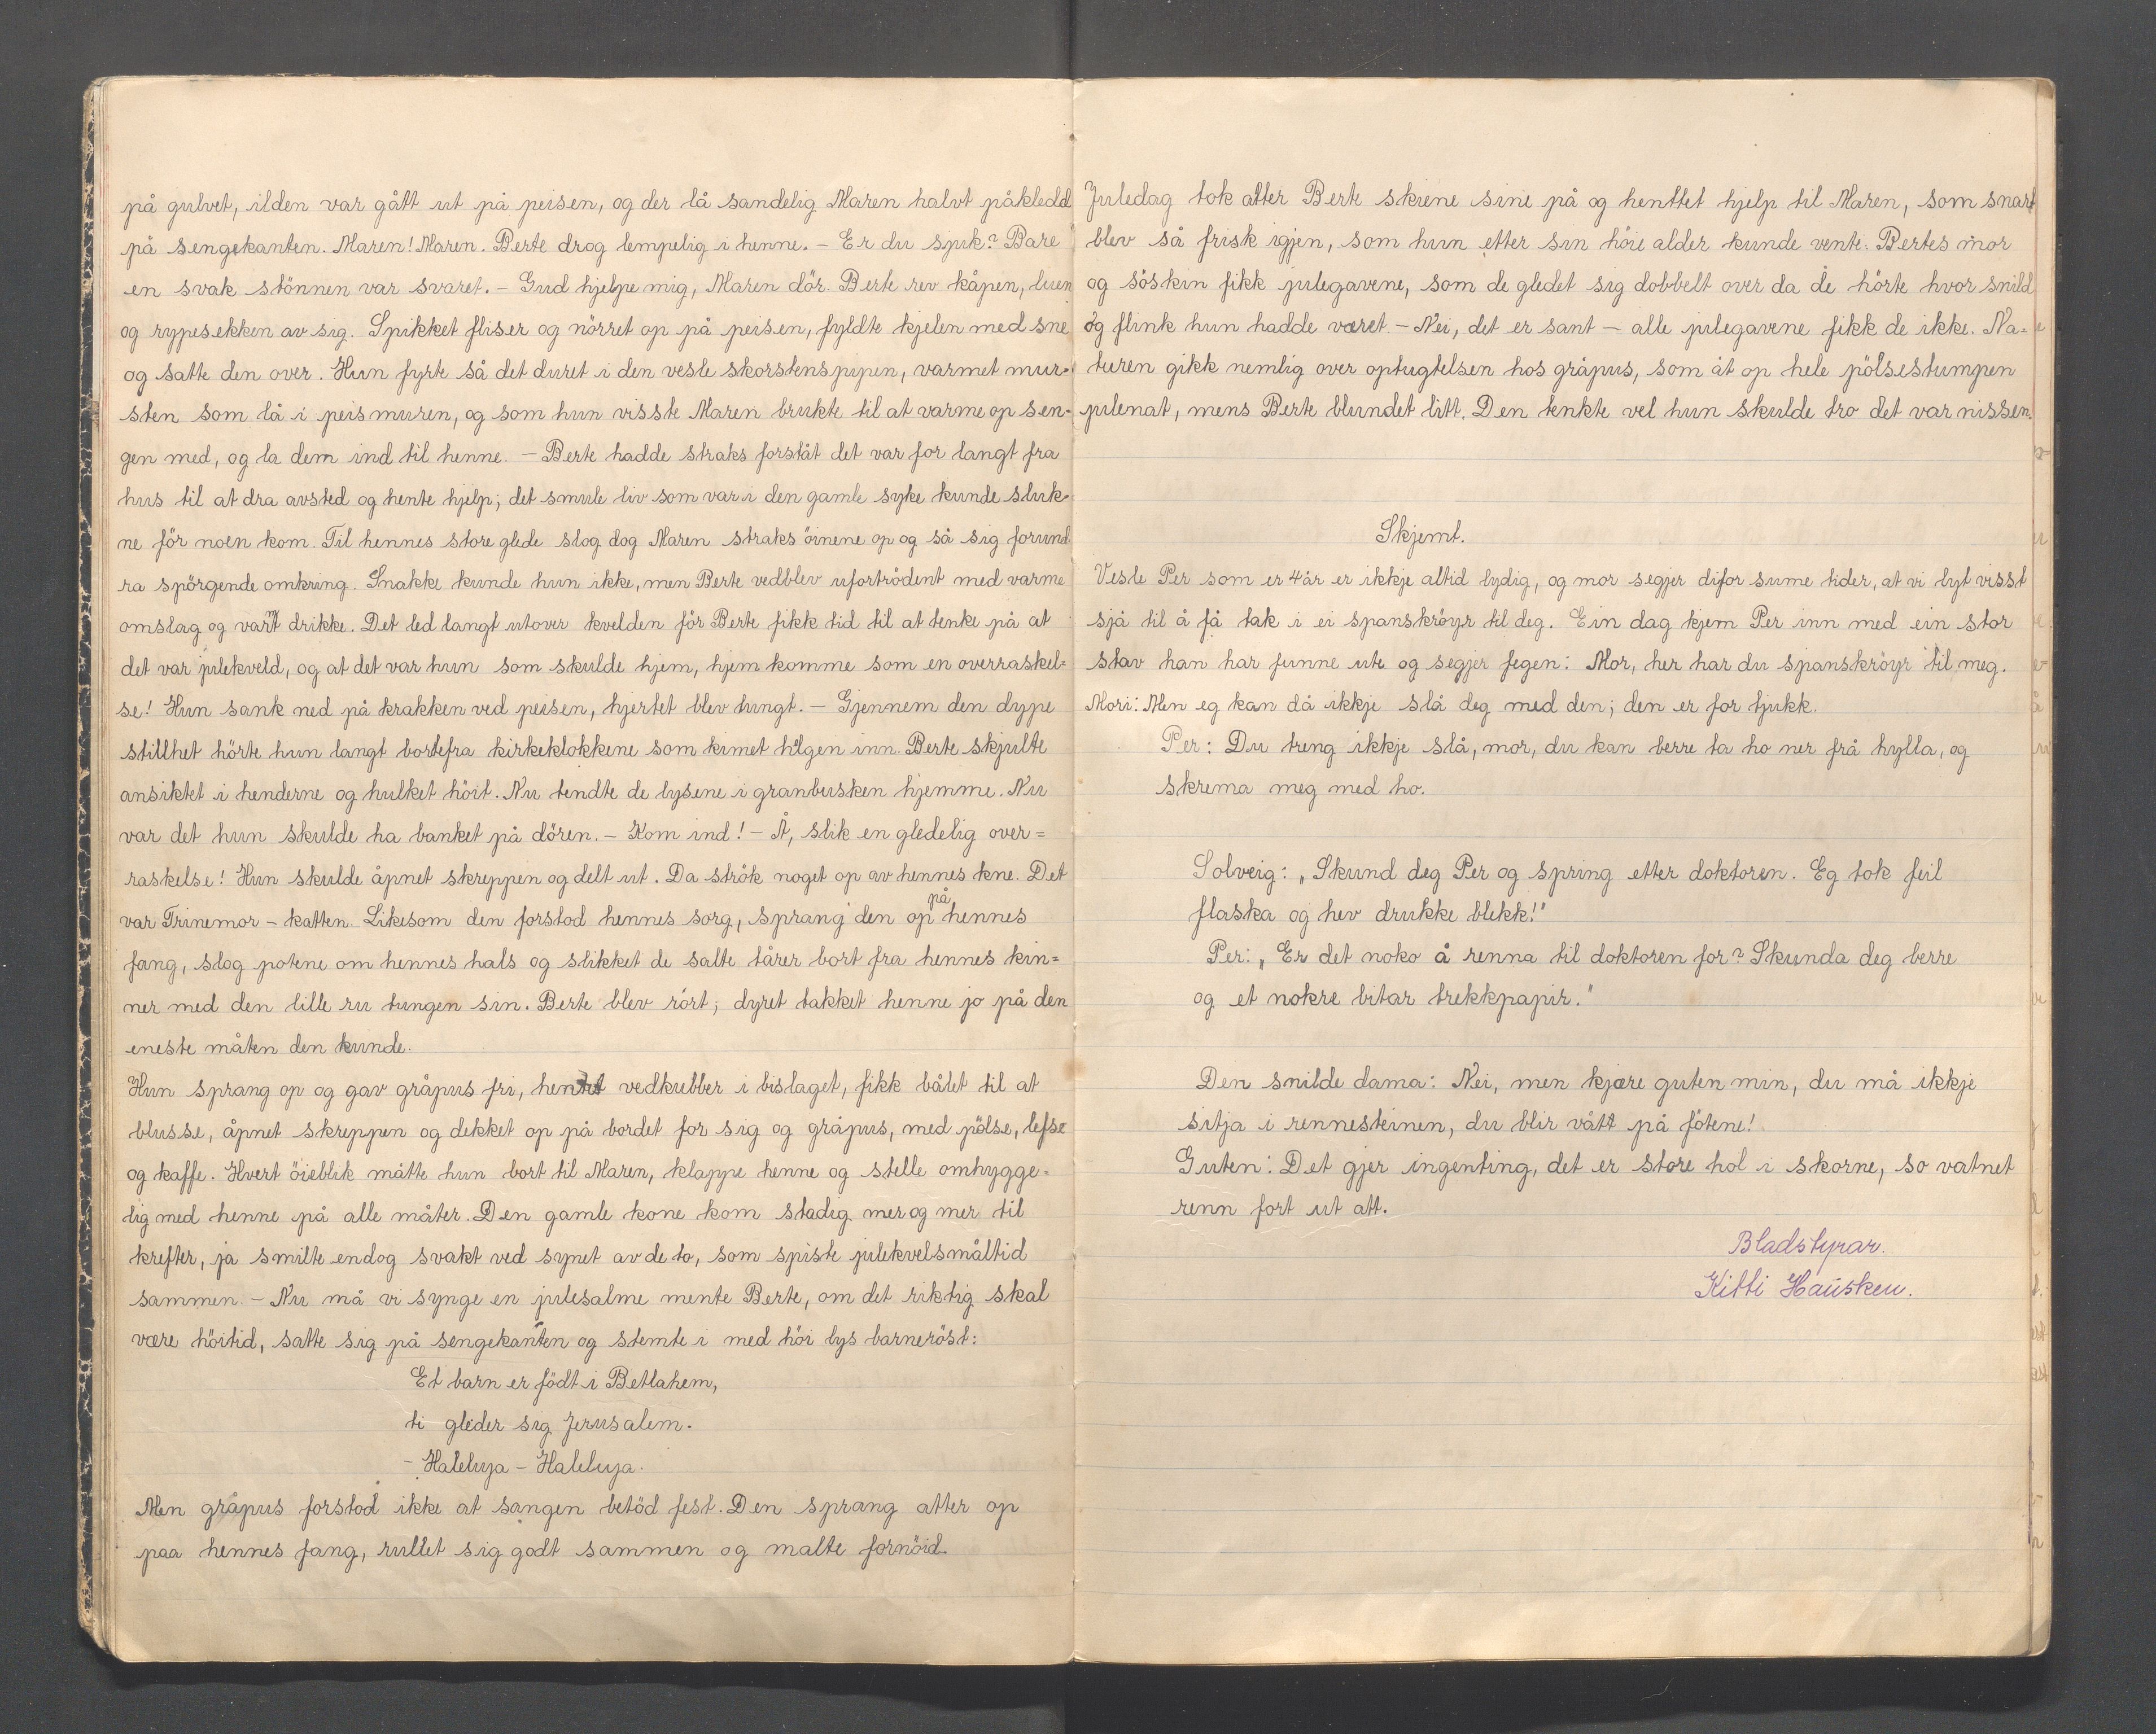 på gulvet, ilden var gått ut på peisen, og der lå sandelig Maren halvt påkledd
på sengekanten. Maren! Maren. Berte drog lempelig i henne. - Er du sjuk? Bare
en svak stönnen var svaret. - Gud hjelpe mig, Maren dör. Berte rev kåpen, luen
og rypesekken av sig. Spikket fliser og nörret op på peisen, fyldte kjelen med sne
og satte den over. Hun fyrte så det duret i den vesle skorstenspipen, varmet mur-
sten som lå i peismuren, og som hun visste Maren brukte til at varme op sen-
gen med, og la dem ind til henne. - Berte hadde straks forståt det var for langt fra
hus til at dra avsted og hente hjelp; det smule liv som var i den gamle syke kunde sluk-
ne för noen kom. Til hennes store glede slog dog Maren straks öinene op og så sig forund
ra spörgende omkring. Snakke kunde hun ikke, men Berte vedblev ufortrödent med varme
omslag og varmt drikke. Det led langt utover kvelden för Berte fikk tid til at tenke på at
det var julekveld, og at det var hun som skulde hjem, hjem komme som en overraskel-
se! Hun sank ned på krakken ved peisen, hjertet blev tungt. - Gjennem den dype
stillhet hörte hun langt bortefra kirkeklokkene som kimet helgen inn. Berte skjulte
ansiktet i henderne og hulket höit. Nu tendte de lysene i granbusken hjemme. Nu
var det hun skulde ha banket på dören. - Kom ind! - Å, slik en gledelig over=
raskelse! Hun skulde åpnet skreppen og delt ut. Da strök noget op av hennes kne. Det
var Trinemor - katten. Likesom den forstod hennes sorg, sprang den op på hennes
fang, slog potene om hennes hals og slikket de salte tårer bort fra hennes kin=
ner med den lille ru tungen sin. Berte blev rört; dyret takket henne jo på den
eneste måten den kunde.
Hun sprang op og gav gråpus fri, hentet vedkubber i bislaget, fikk bålet til at
blusse, åpnet skreppen og dekket op på bordet for sig og gråpus, med pölse, lefse
og kaffe. Hvert öieblik måtte hun bort til Maren, klappe henne og stelle omhygge-
lig med henne på alle måter. Den gamle kone kom stadig mer og mer til
krefter, ja smilte endog svakt ved synet av de to, som spiste julekvelsmåltid
sammen. - Nu må vi synge en julesalme mente Berte, om det riktig skal
være höitid, satte sig på sengekanten og stemte i med höi lys barneröst:
Et barn er födt i Betlahem,
ti gleder sig Jerusalem.
- Haleluja - Haleluja.
Men gråpus forstod ikke at sangen betöd fest. Den sprang atter op
paa hennes fang, rullet sig godt sammen og malte fornöid.
Juledag tok atter Berte skiene sine på og henttet hjelp til Maren, som snart
blev så frisk igjen, som hun etter sin höie alder kunde vente. Bertes mor
og söskin fikk julegavene, som de gledet sig dobbelt over da de hörte hvor snild
og flink hun hadde været. - Nei, det er sant - alle julegavene fikk de ikke. Na-
turen gikk nemlig over optugtelsen hos gråpus, som åt op hele pölsestumpen
julenat, mens Berte blundet litt. Den tenkte vel hun skulde tro det var nissen.
Skjemt.
Vesle Per som er 4 år er ikkje altid lydig, og mor segjer difor sume tider, at vi lyt visst
sjå til å få tak i ei spanskröyr til deg. Ein dag kjem Per inn med ein stor
stav han har funne ute og segjer fegen: Mor, her har du spanskröyr til meg.
Mori: Men eg kan då ikkje slå deg med den; den er for tjukk.
Per: Du treng ikkje slå, mor, du kan berre ta ho ner frå hylla, og
skrema meg med ho.
Solveig: „Skund deg Per og spring etter doktoren. Eg tok feil
flaska og hev drukke blekk!"
Per: „Er det noko å renna til doktoren for? Skunda deg berre
og et nokre bitar trekkpapir."
Den snilde dama: Nei, men kjære guten min, du må ikkje
sitja i rennesteinen, du blir vått på fötene!
Guten: Det gjer ingenting, det er store hol i skorne, so vatnet
renn fort ut att.
Bladstyrar.
Kitti Hausken.